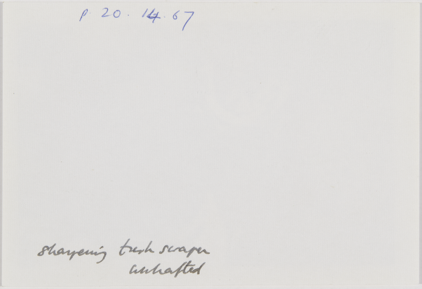 P 20. 14. 67
sharpening tush scraper
unhafted